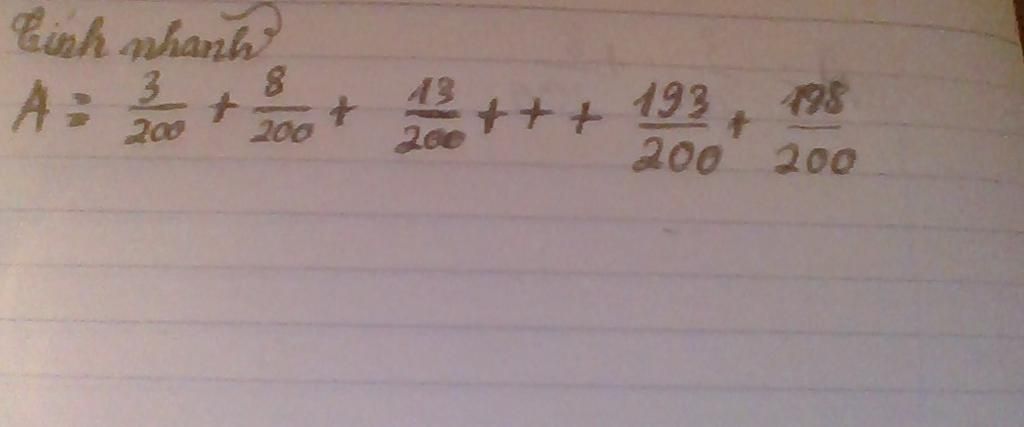 Tính nhanh
A = 3/200 + 8/200 + 13/200 + + + 193/200 + 198/200